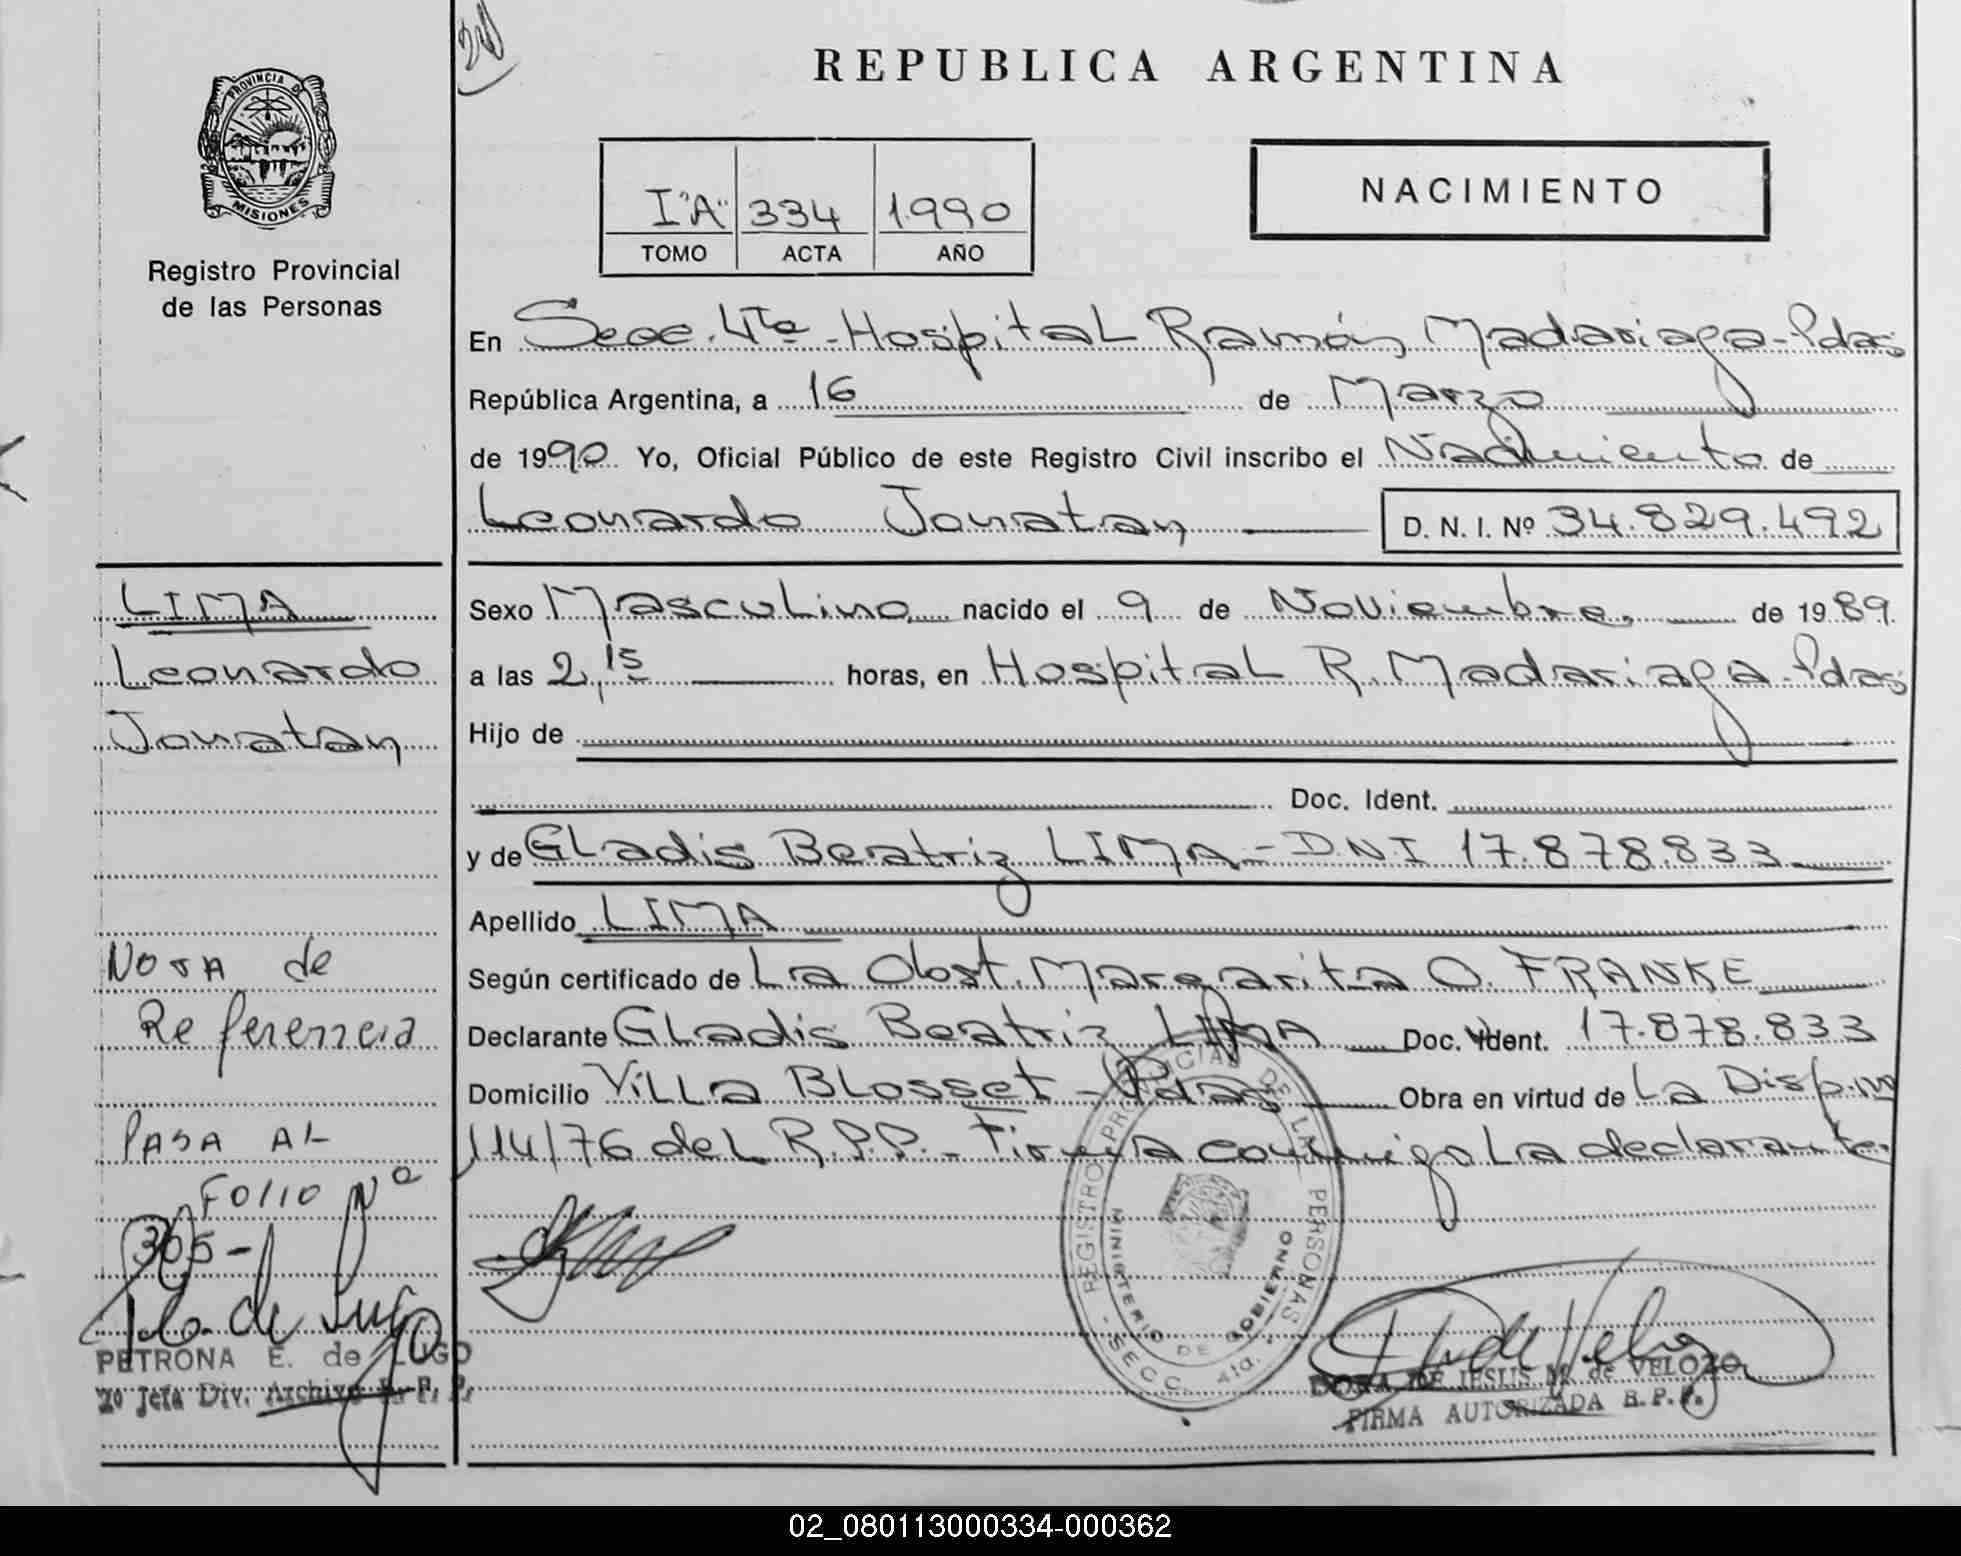 REPUBLICA ARGENTINA
PROVINCIA DE
MISIONES
Registro Provincial
de las Personas
I "A" 334 1990
TOMO ACTA AÑO
NACIMIENTO
En Secc. 4ta - Hospital Ramón Madariaga - Pdas
República Argentina, a 16 de Marzo
de 1990 Yo, Oficial Público de este Registro Civil inscribo el Nacimiento de
Leonardo Jonatan D. N. I. Nº 34.829.492
LIMA
Leonardo
Jonatan
Sexo Masculino, nacido el 9 de Noviembre, de 1989
a las 2,15 horas, en Hospital R. Madariaga - Pdas
Hijo de
Doc. Ident.
y de Gladis Beatriz LIMA - DNI 17.878.833
Apellido LIMA
Según certificado de La Obst. Margarita O. FRANKE
Declarante Gladis Beatriz LIMA Doc. Ident. 17.878.833
Domicilio Villa Blosset - Pdas Obra en virtud de La Disp.
114/76 del R.P.P. - Firma conmigo la declarante.
NOTA de
Referencia
PASA AL
FOLIO Nº
365-
PETRONA E. de LUGO
2º Jefa Div. Archivo R. P. P.
REGISTRO PROVINCIAL DE LAS PERSONAS
MINISTERIO DE GOBIERNO
- SECC. 4ta. -
DORA DE JESUS M. de VELOZO
FIRMA AUTORIZADA R.P.P.
02_080113000334-000362